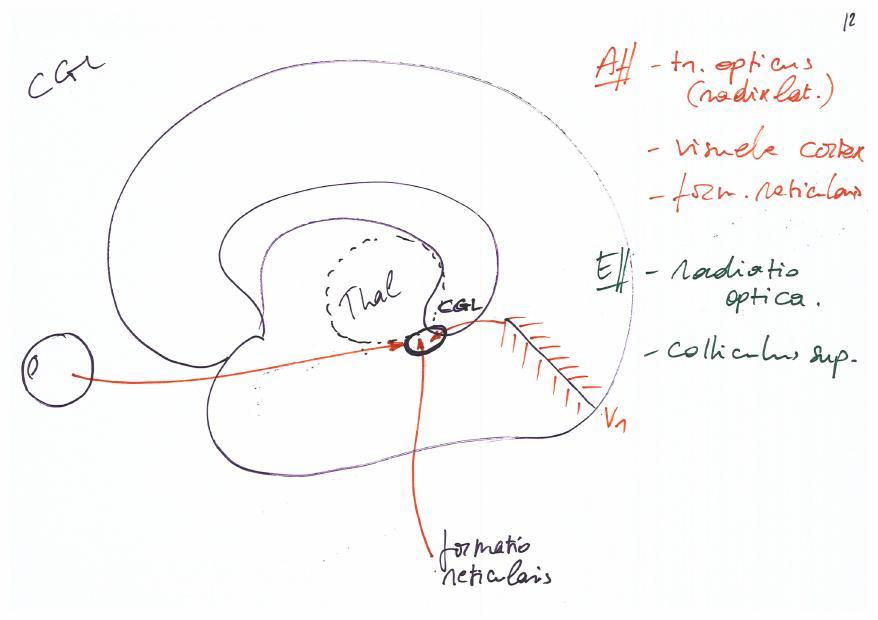 12
CGL
Aff - tr. opticus
(radix lat.)
- visuele cortex
- form. reticularis
Eff - radiatio
optica.
- colliculus sup.
Thal
CGL
V1
formatio
reticularis